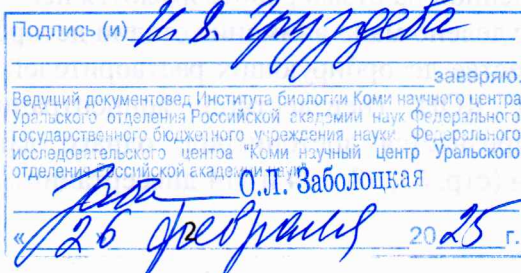 Подпись (и) И.В. Груздева
заверяю.
Ведущий документовед Института биологии Коми научного центра
Уральского отделения Российской академии наук Федерального
государственного бюджетного учреждения науки Федерального
исследовательского центра "Коми научный центр Уральского
отделения Российской академии наук"
О.Л. Заболоцкая
«26» февраля 2025 г.